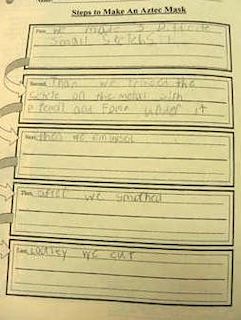 Steps to Make An Aztec Mask
First, we made a little
small
Second, Than we traced the
on the metal with
a pencil and Foam under it
Then, we
Next, after we smothed
we cut